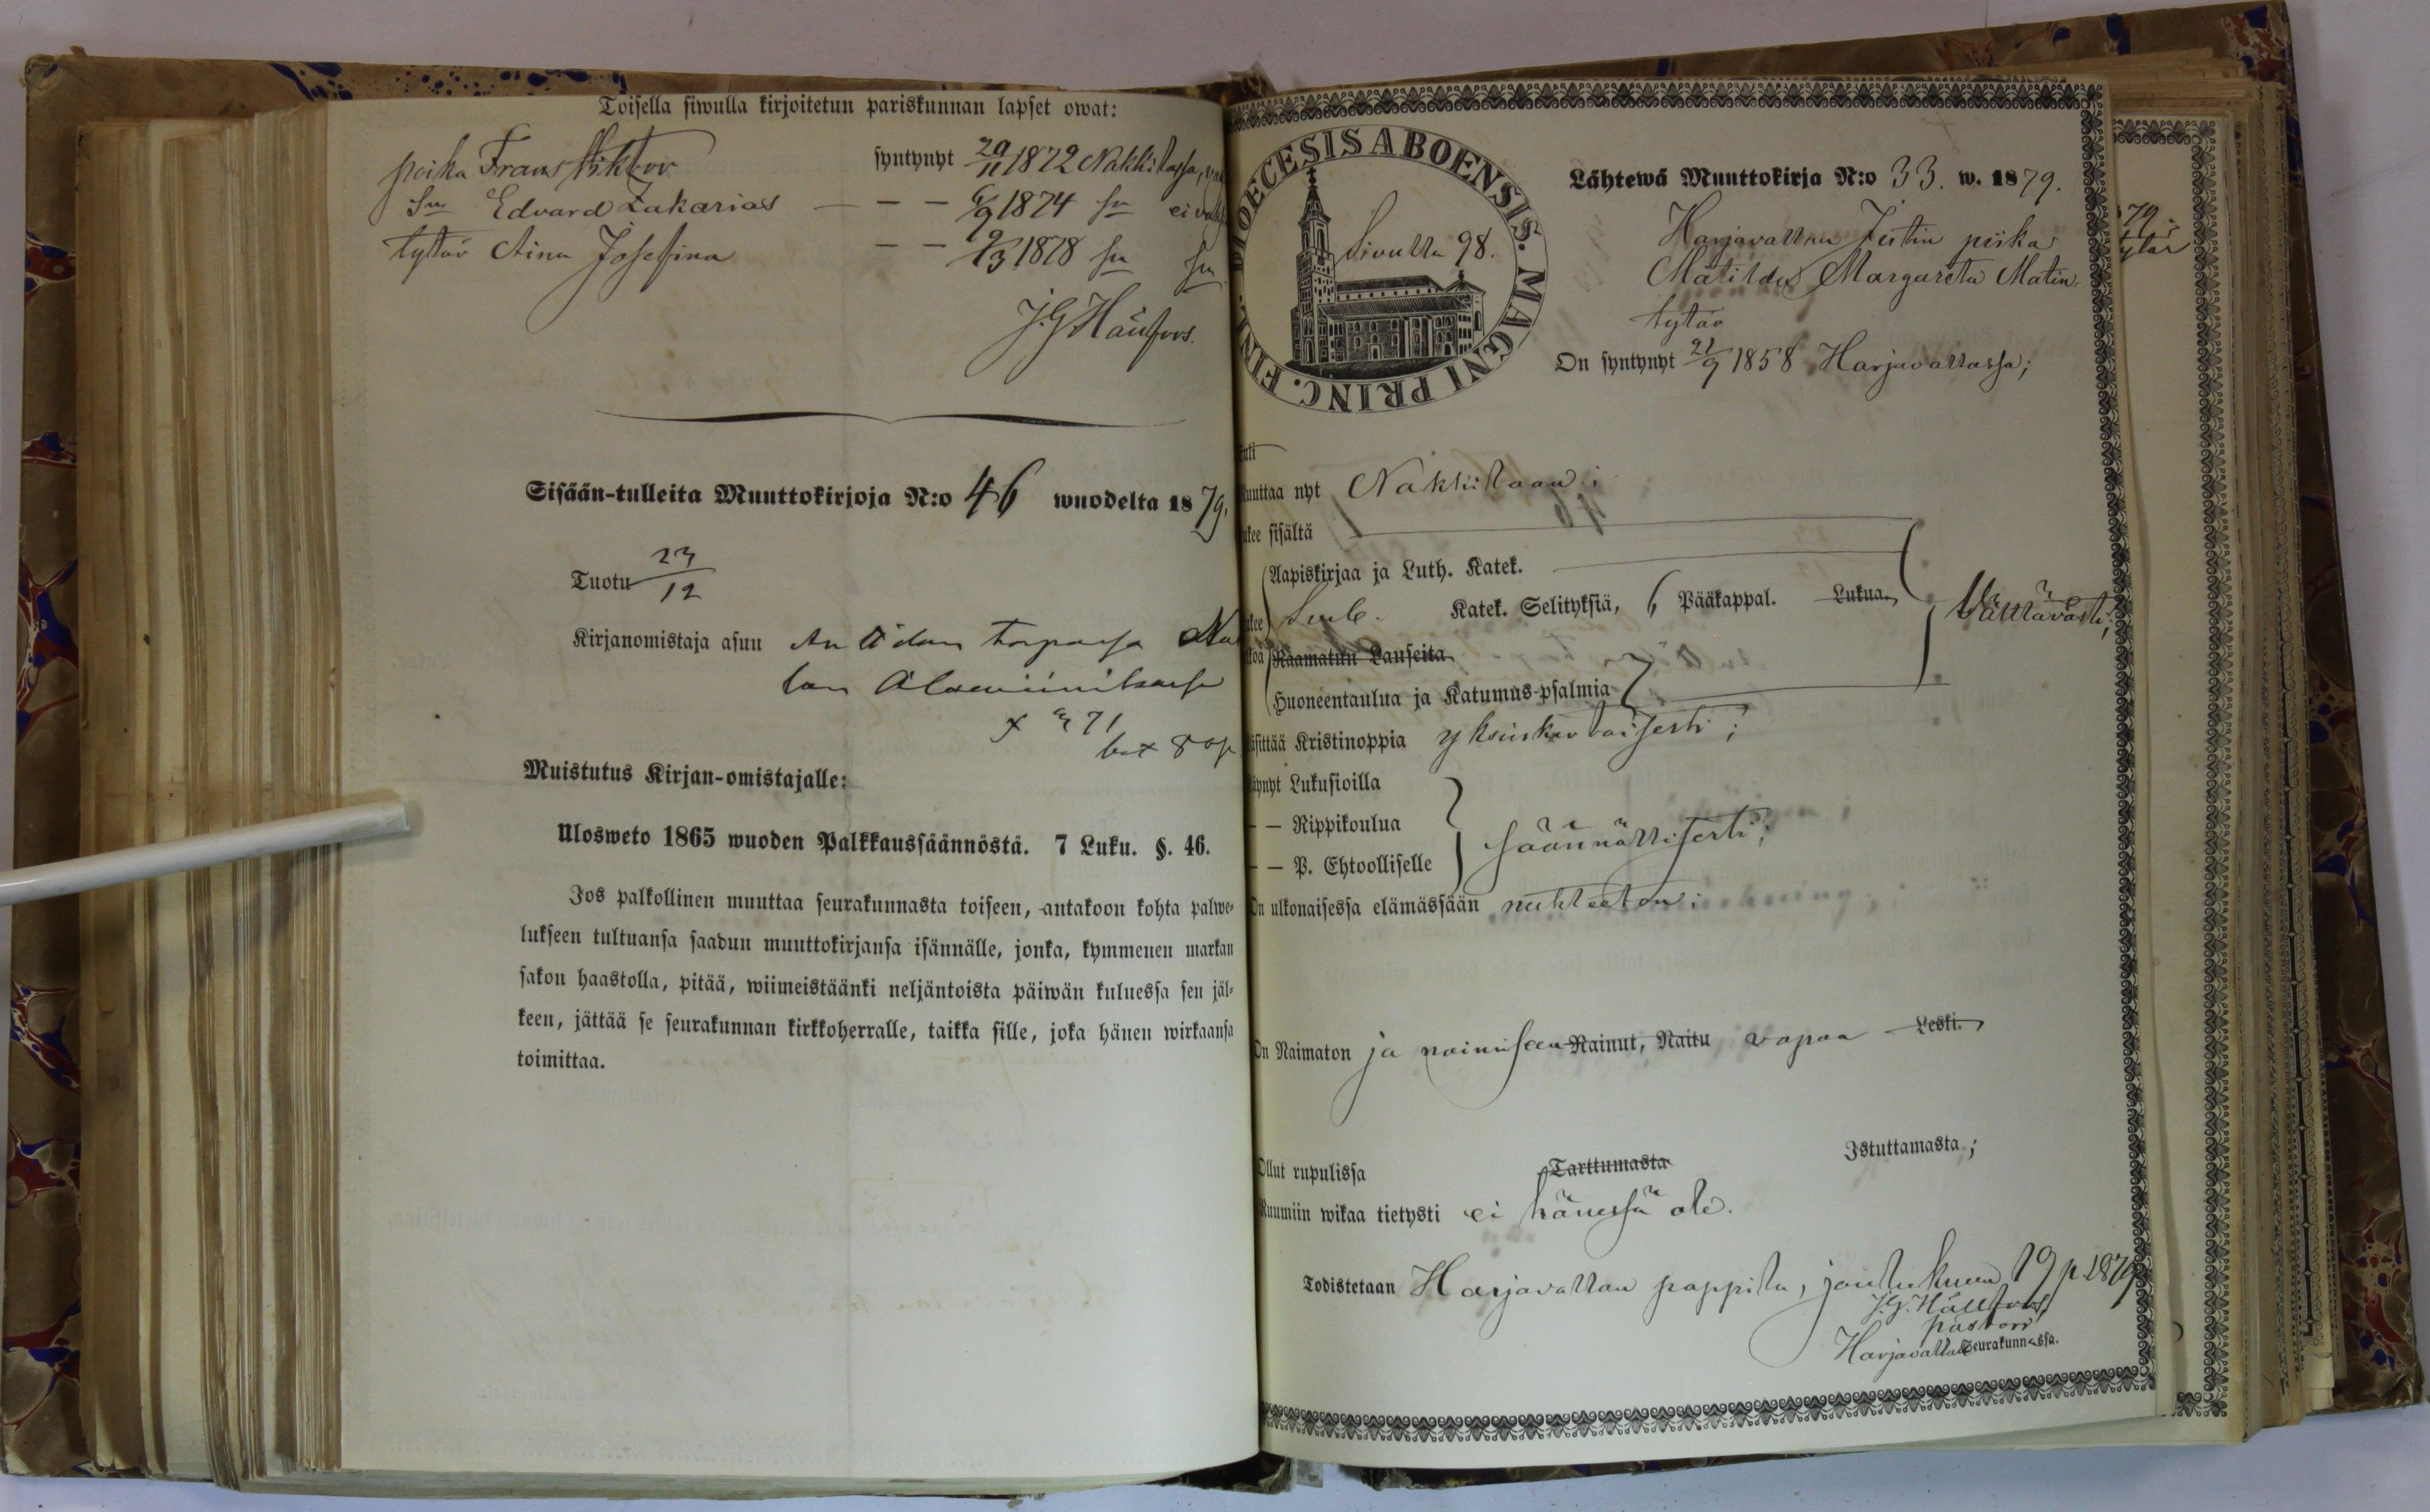 Toisella siwulla kirjoitetun pariskunnan lapset owat:
poika Frans Viktor syntynyt 20/11 1872 Nakkilassa,
Sm Edvard Zakarias — — — 6/9 1874 sm ei
tytär Aina Josefina — — 9/3 1878 sm sm
J. G. Hällfors.
Sisään-tulleita Muuttokirjoja N:o 46 wuodelta 1879.
Tuotu 23/12
Kirjanomistaja asuu torpassa
Muistutus Kirjan-omistajalle:
Ulosweto 1865 wuoden Palkkaussäännöstä. 7 Luku. §. 46.
Jos palkollinen muuttaa seurakunnasta toiseen, antakoon kohta palwe-
lukseen tultuansa saadun muuttokirjansa isännälle, jonka, kymmenen markan
sakon haastolla, pitää, wiimeistäänki neljäntoista päiwän kuluessa sen jäl-
keen, jättää se seurakunnan kirkkoherralle, taikka sille, joka hänen wirkaansa
toimittaa.
DIOECESIS ABOENSIS. MAGNI PRINC. FINL.
Sivulta 98.
Lähtewä Muuttokirja N:o 33. w. 1879.
Harjavallan piika
Matilda Margareta Matin
tytär
On syntynyt 21/9 1858 Harjavallassa;
Muuttaa nyt Nakkilaan;
Lukee sisältä
Aapiskirjaa ja Luth. Katek.
Katek. Selityksiä, 6 Pääkappal. Lukua. Välttävästi;
Raamatun Lauseita
Huoneentaulua ja Katumus-psalmia 7
Käsittää Kristinoppia yksinkertaisesti;
Käynyt Lukusioilla
— — Rippikoulua
— — P. Ehtoolliselle säännöllisesti;
On ulkonaisessa elämässään nuhteeton;
On Naimaton ja naimiseen Nainut, Naitu vapaa Leski.
Ollut rupulissa Tarttumasta Istuttamasta;
Ruumiin wikaa tietysti ei hänessä ole.
Todistetaan Harjavallan pappila, joulukuun 19 p. 1879
J. G. Hällfors
pastori
Harjavallan Seurakunnassa.